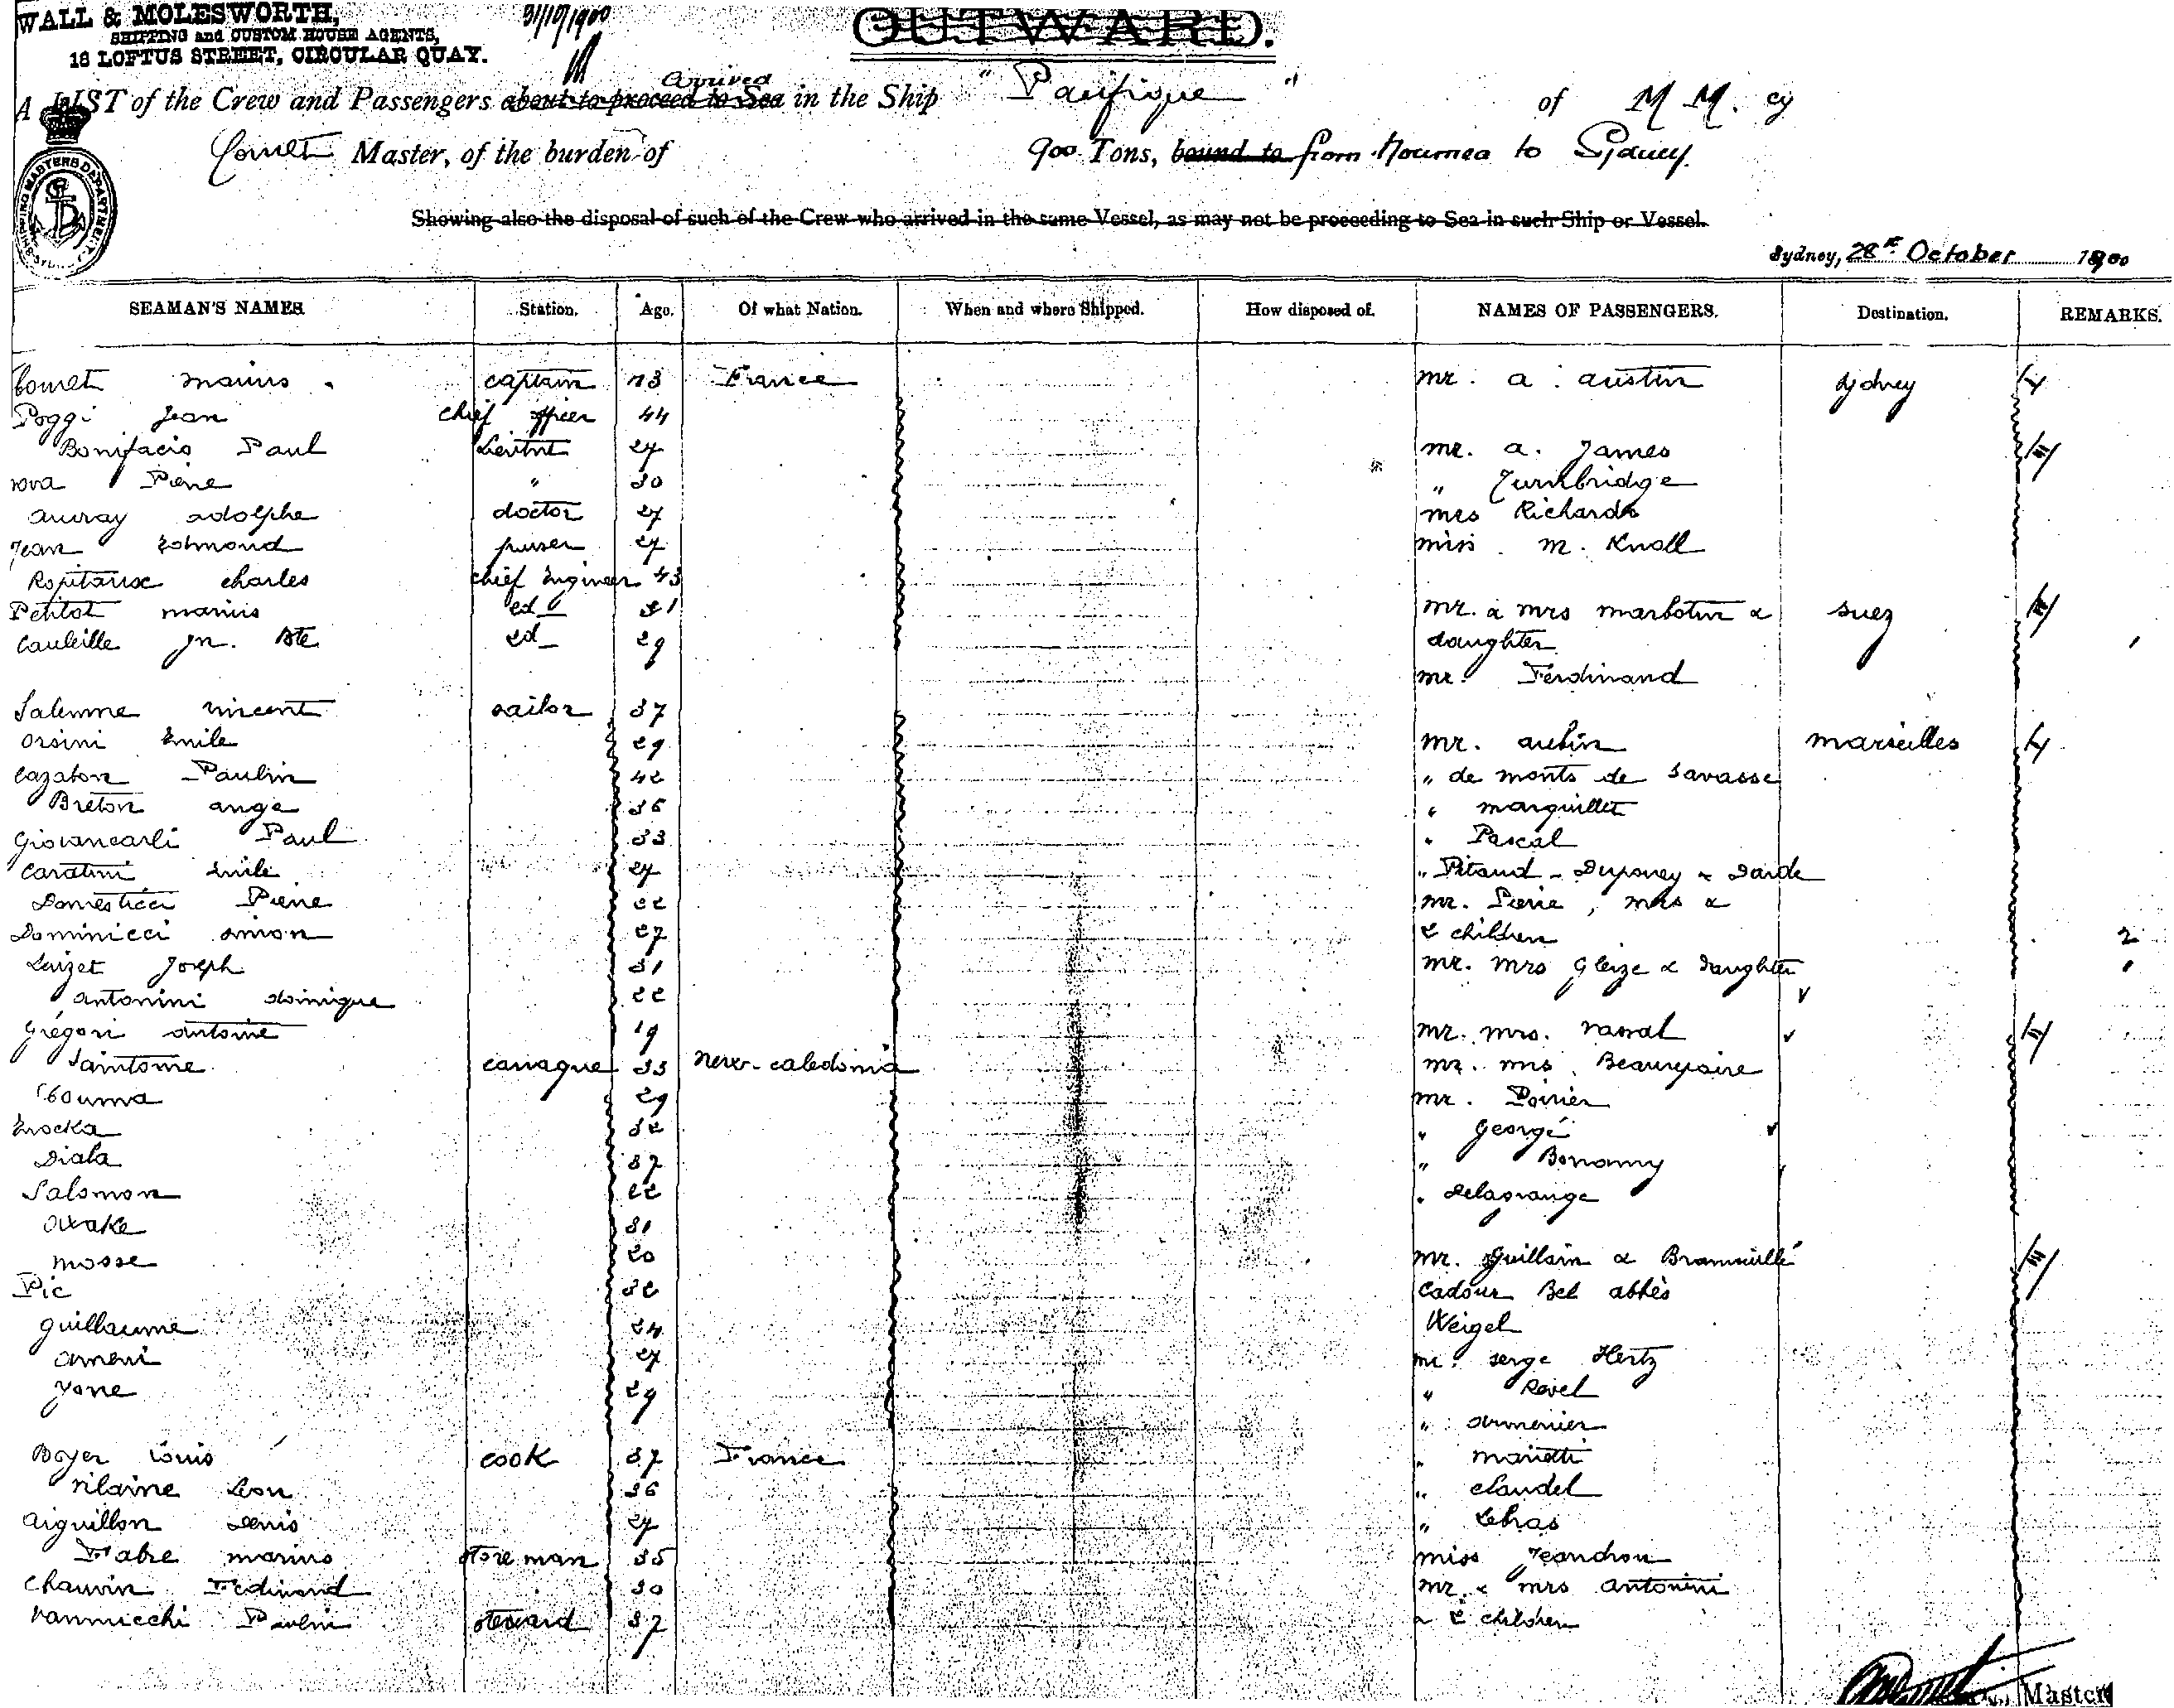 WALL & MOLESWORTH,
SHIPPING and CUSTOM HOUSE AGENTS,
18 LOFTUS STREET, CIRCULAR QUAY.
31/10/1900
OUTWARD.
A LIST of the Crew and Passengers about to proceed to Sea arrived in the Ship "Pacifique" of M M. Cy
Comet Master, of the burden of 900 Tons, bound to from Noumea to Sydney.
SHIPPING MASTERS DEPARTMENT. SYDNEY
Showing also the disposal of such of the Crew who arrived in the same Vessel, as may not be proceeding to Sea in such Ship or Vessel.
Sydney, 28th October 1900
SEAMAN'S NAMES Station. Age. Of what Nation. When and where Shipped. How disposed of. NAMES OF PASSENGERS. Destination. REMARKS.
Comet marius captain 43 France mr. a. austin Sydney
Poggi Jean chief officer 44
Bonifacio Paul Lieutnt 27 mr. a. James
Pierre " 30 " Turnbridge
auray adolphe doctor 27 mrs Richards
Jean Edmond purser 27 miss m. Knoll
charles chief Engineer 43
Petitot marius 2d 31 mr. & mrs marbotin & Suez
Jn. Bte 2d 29 daughter
mr. Ferdinand
Salemme vincent sailor 37
orsini Emile 29 mr. aubin marseilles
Cazabon Paulin 42 " de monts de Savasse
Breton ange 36 " marquillet
Giovancarli Paul 33 " Pascal
Caratini Emile 27 " Pitaud - Dupouey & Darde
Domestici Pierre 22 mr. Pierre, mrs &
Dominicci simon 27 2 children 2
Luizet Joseph 31 mr. mrs Gleize & daughter
antonini dominique 22
Grégori antoine 19 mr. mrs.
Saintome canaque 33 New-caledonia mr. mrs. Beaurepaire
29 mr. Poirier
Enocka 32 " George
Diala 37 " Bonamy
Salomon 22 " Delagrange
31
mosse 20 mr. Guillain & Bramoullé
Pic 32 Cadour Bel abbès
guillaume 24 Weigel
ameni 27 mr. serge Hertz
yone 29 " Revel
" armenier
Boyer Louis cook 37 France " mariotti
vilaine Leon 36 " claudel
aiguillon Denis 27 " Lebras
Fabre marius store man 35 miss Jeandron
Chauvin Ferdinand 30 mr. & mrs antonini
vannucchi Paulin steward 37 & 2 children
Master